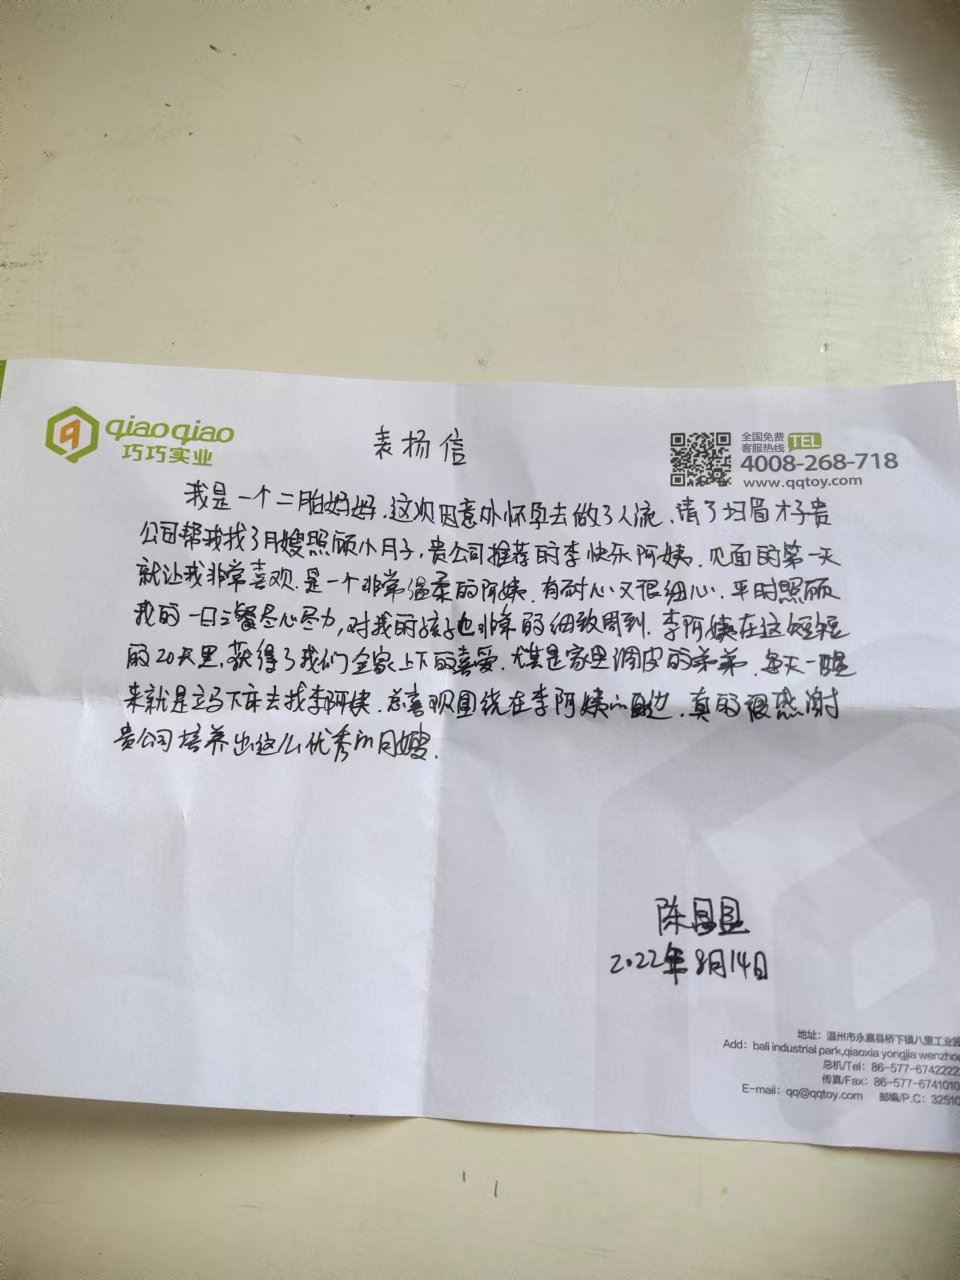 qiaoqiao
巧巧实业
表扬信
全国免费
客服热线 TEL
4008-268-718
www.qqtoy.com
我是一个二胎妈妈，这次因意外怀孕去做了人流，请了扫眉才子贵
公司帮我找了月嫂照顾小月子，贵公司推荐的李快乐阿姨，见面的第一天
就让我非常喜欢，是一个非常温柔的阿姨，有耐心又很细心，平时照顾
我的一日三餐尽心尽力，对我的孩子也非常的细致周到，李阿姨在这短短
的20天里，获得了我们全家上下的喜爱，尤其是家里调皮的弟弟，每天一醒
来就是立马下床去找李阿姨，总喜欢围绕在李阿姨的身边，真的很感谢
贵公司培养出这么优秀的月嫂.
陈
2022年8月14日
地址：温州市永嘉县桥下镇八里工业园
Add：bali industrial park,qiaoxia yongjia wenzhou
总机/Tel：86-577-6742222
传真/Fax：86-577-6741010
E-mail：qq@qqtoy.com 邮编/P.C：32510